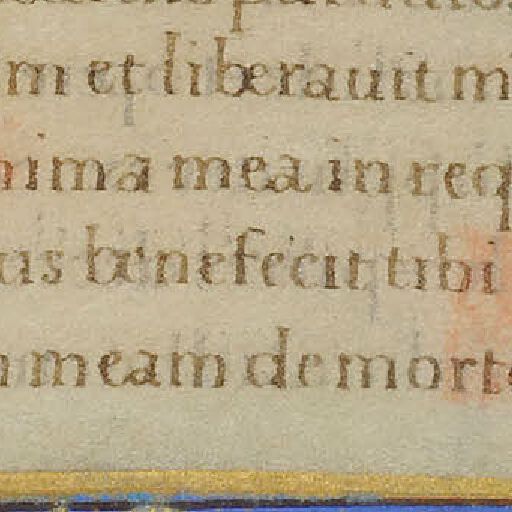 m et liberavit m
nima mea in req
us benefecit tibi
m meam de mort